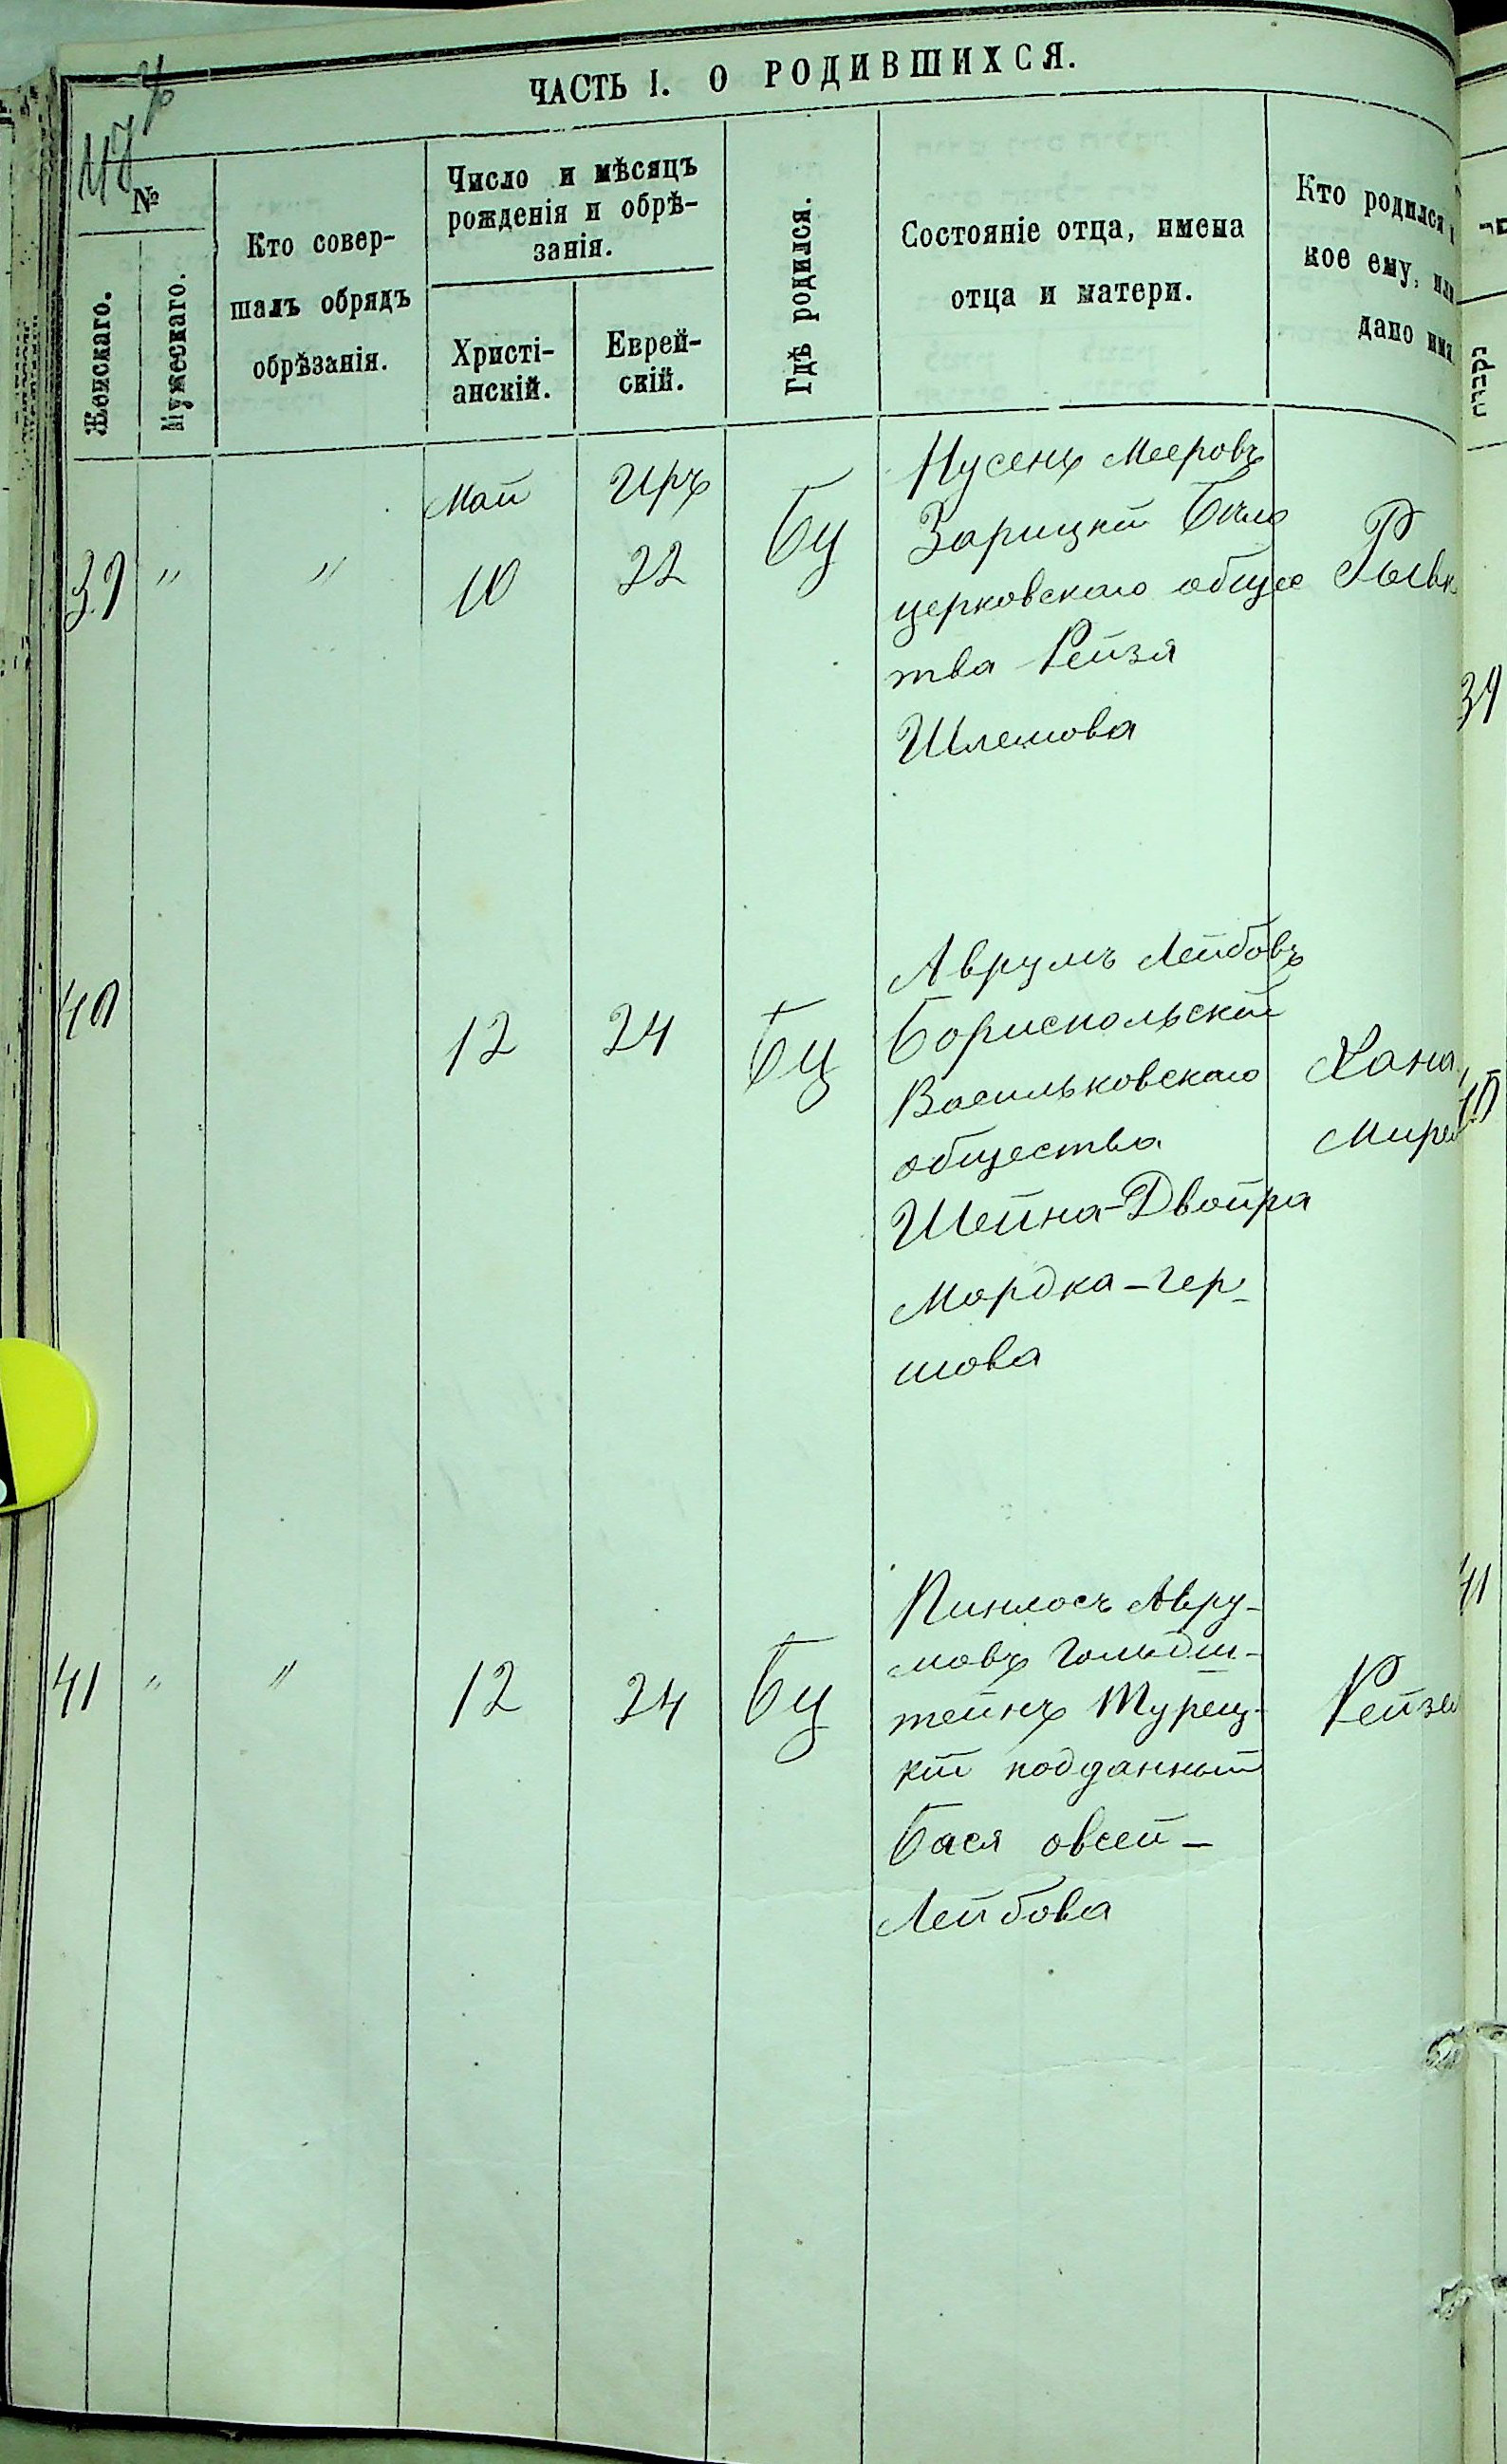 ЧАСТЬ I. О РОДИВШИХСЯ.
№
Женскаго.
Мужескаго.
Кто совер-
шалъ обрядъ
обрѣзанія.
Число и мѣсяцъ
рожденія и обрѣ-
занія.
Христі-
анскій.
Еврей-
скій.
Гдѣ родился.
Состояніе отца, имена
отца и матери.
Кто родился
кое ему, или
дано имя
נקבות
39 " "
Май
10
Иръ
22
БЦ
Нусенъ Мееровъ
Зарицкій Бѣло
церковскаго общес
тва Рейзя
Шлемова
Рывк
39
40
12
24
БЦ
Аврумъ Лейбовъ
Бориспольскій
Васильковскаго
общества
Шейна-Двойра
Мордка-Гер-
шова
Хана,
Мире
40
41 " "
12
24
БЦ
Пинхосъ Авру-
мовъ Гольдш-
тейнъ Турец-
кій подданный
Бася Овсей-
Лейбова
Рейзя
41